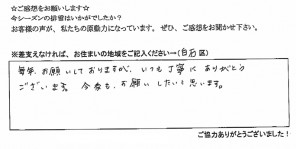 ☆ご感想をお願いします☆
今シーズンの排雪はいかがでしたか？
お客様の声が、私たちの原動力になっています。ぜひ、ご感想をお聞かせ下さい。
※差支えなければ、お住まいの地域をご記入ください→(白石区)
毎年、お願いしておりますが、いつも丁寧にありがとう
ございます。今后も、お願いしたいと思います。
ご協力ありがとうございました！